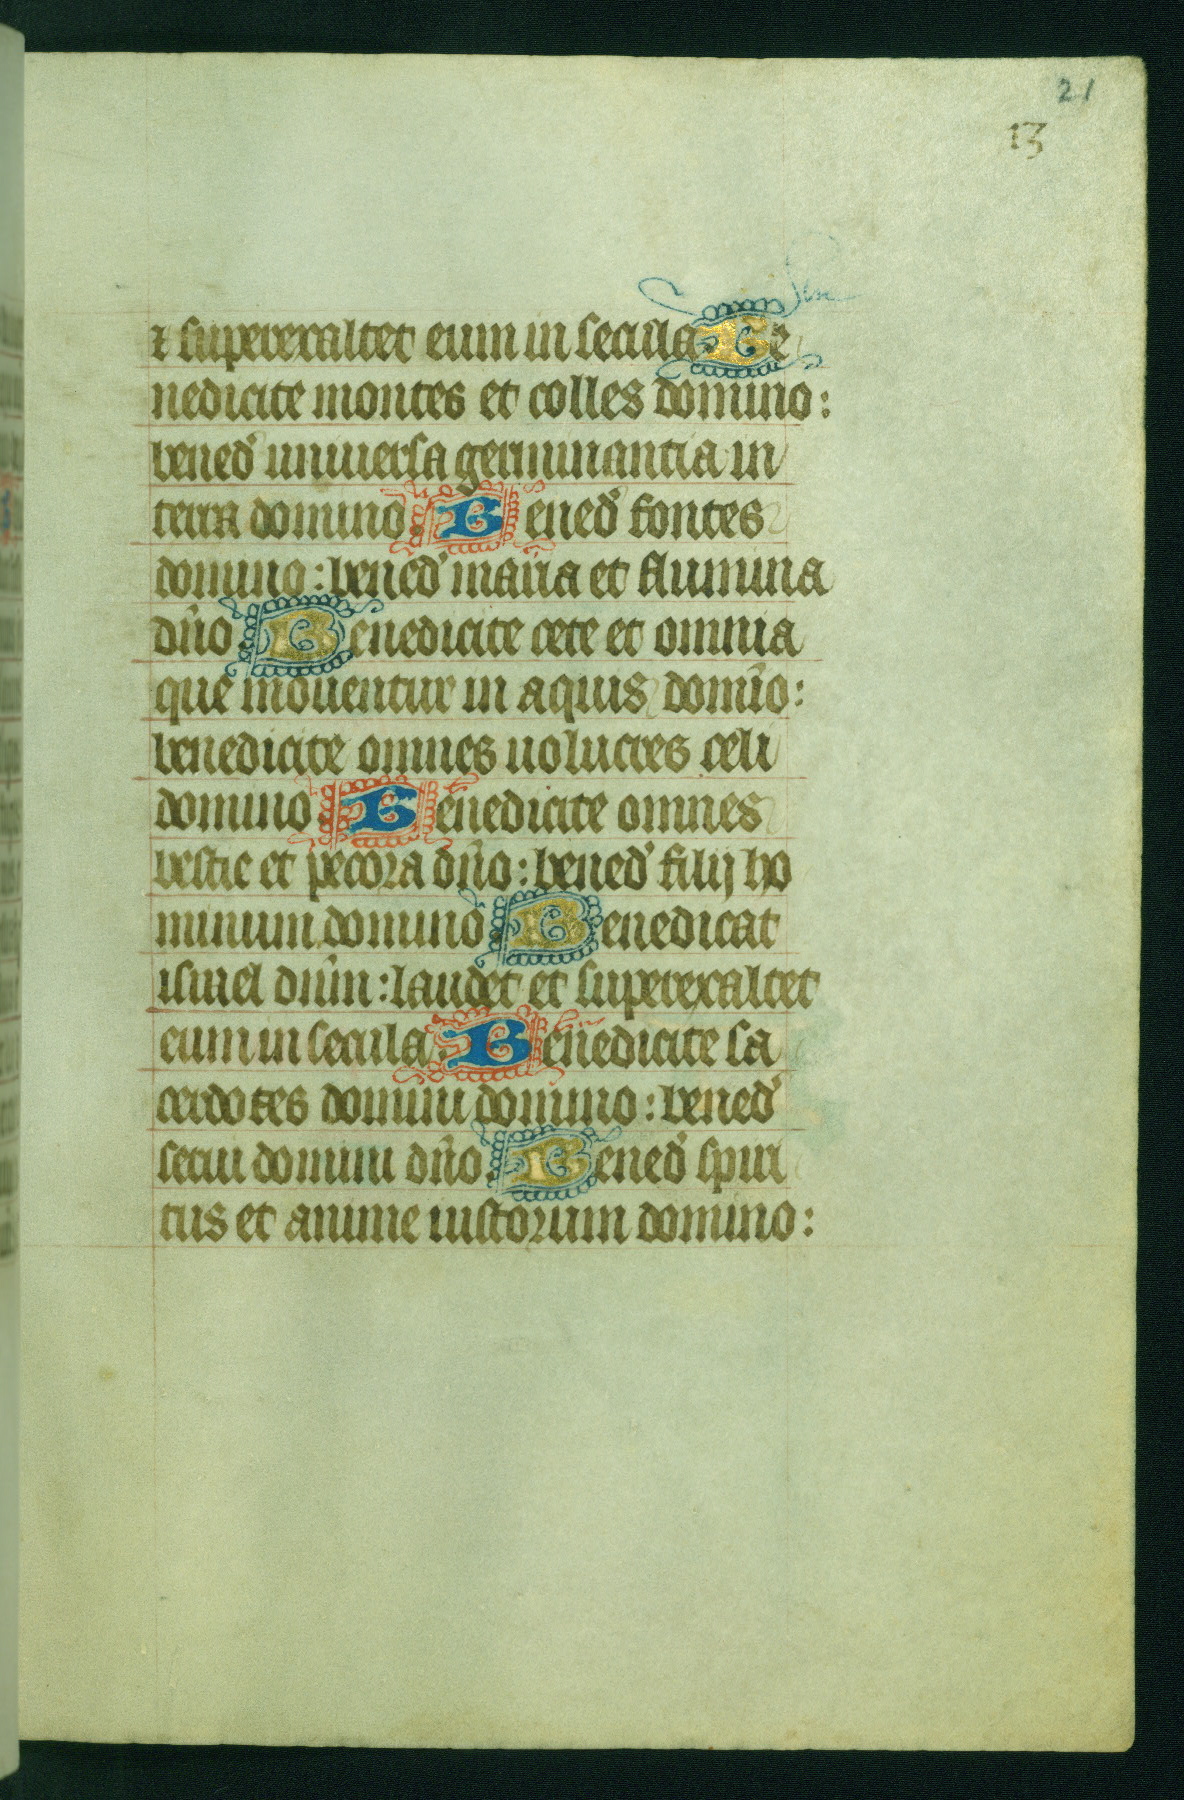 21
13
⁊ superexaltet eum in secula Be
nedicite montes et colles domino:
bened̉ uniuersa germinantia in
terra domino Bened̉ fontes
domino: bened̉ maria et flumina
dn̄o Benedicite cete et omnia
que mouentur in aquis domīo:
benedicite omnes uolucres celi
domino Benedicite omnes
bestie et pecora dn̄o: bened̉ filij ho
minum domino Benedicat
israel dn̄m: laudet et superexaltet
eum in secula Benedicite sa
cerdotes domini domino: bened̉
serui domini dn̄o Bened̉ spiri
tus et anime iustorum domino: